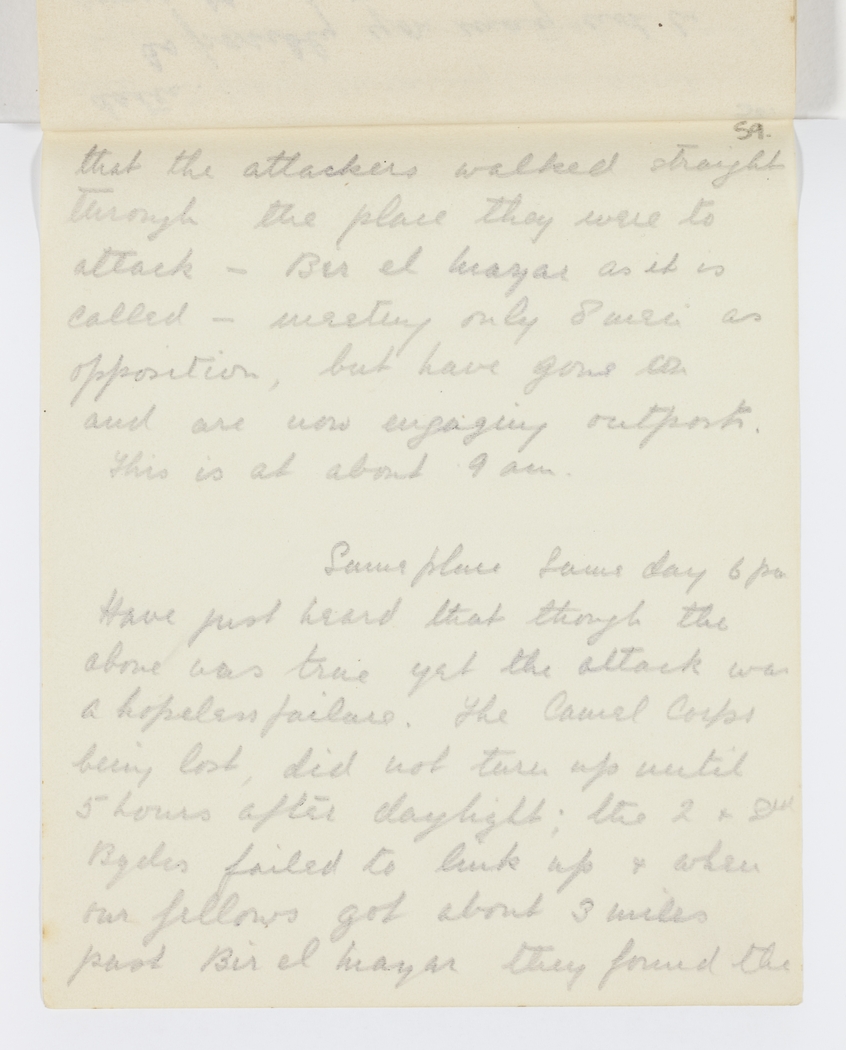 59.
that the attackers walked straight
through the place they were to
attack - Bir el Mazar as it is
called - meeting only 8 men as
opposition, but have gone on
and are now engaging outposts.
This is at about 9 am.
Same place Same day 6 pm
Have just heard that though the
above was true yet the attack was
a hopeless failure. The Camel Corps
being lost, did not turn up until
5 hours after daylight; the 2 + 3rd
Bgdes failed to link up + when
our fellows got about 3 miles
past Bir el Mazar they found the